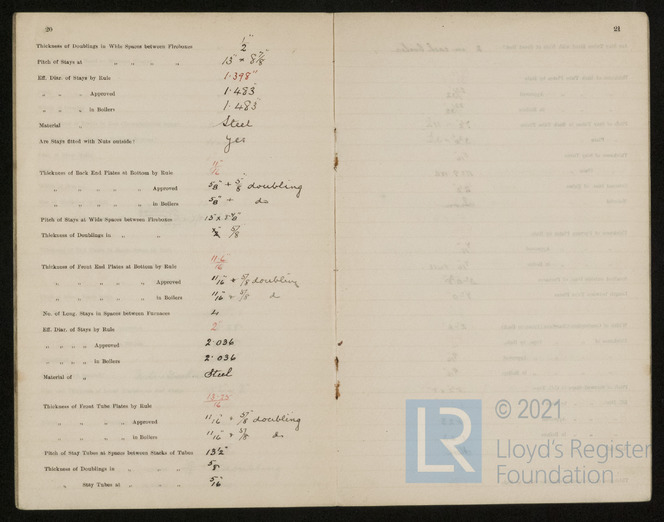 20
Thickness of Doublings in Wide Spaces between Fireboxes 1/2"
Pitch of Stays at „ „ „ „ 13" × 8 7/8"
Eff. Diar. of Stays by Rule 1.398"
„ „ „ Approved 1.483"
„ „ „ in Boilers 1.483"
Material „ Steel
Are Stays fitted with Nuts outside? Yes
Thickness of Back End Plates at Bottom by Rule 11/16"
„ „ „ „ „ Approved 5/8" + 5/8" doubling
„ „ „ „ „ in Boilers 5/8" + do
Pitch of Stays at Wide Spaces between Fireboxes
Thickness of Doublings in „ „ 5/8
Thickness of Front End Plates at Bottom by Rule 11.6/16
„ „ „ „ „ Approved 11/16" + 5/8" doubling
„ „ „ „ „ in Boilers 11/16" + 5/8" d
No. of Long. Stays in Spaces between Furnaces
Eff. Diar. of Stays by Rule 2"
„ „ „ „ Approved 2.036
„ „ „ „ in Boilers 2.036
Material of „ Steel
Thickness of Front Tube Plates by Rule 13.25/16
„ „ „ „ Approved 11/16" + 5/8" doubling
„ „ „ „ in Boilers 11/16" + 5/8" do
Pitch of Stay Tubes at Spaces between Stacks of Tubes 13 1/2"
Thickness of Doublings in „ „ „ 5/8
„ Stay Tubes at „ „ „ 5/16
21
LR
© 2021
Lloyd's Register
Foundation